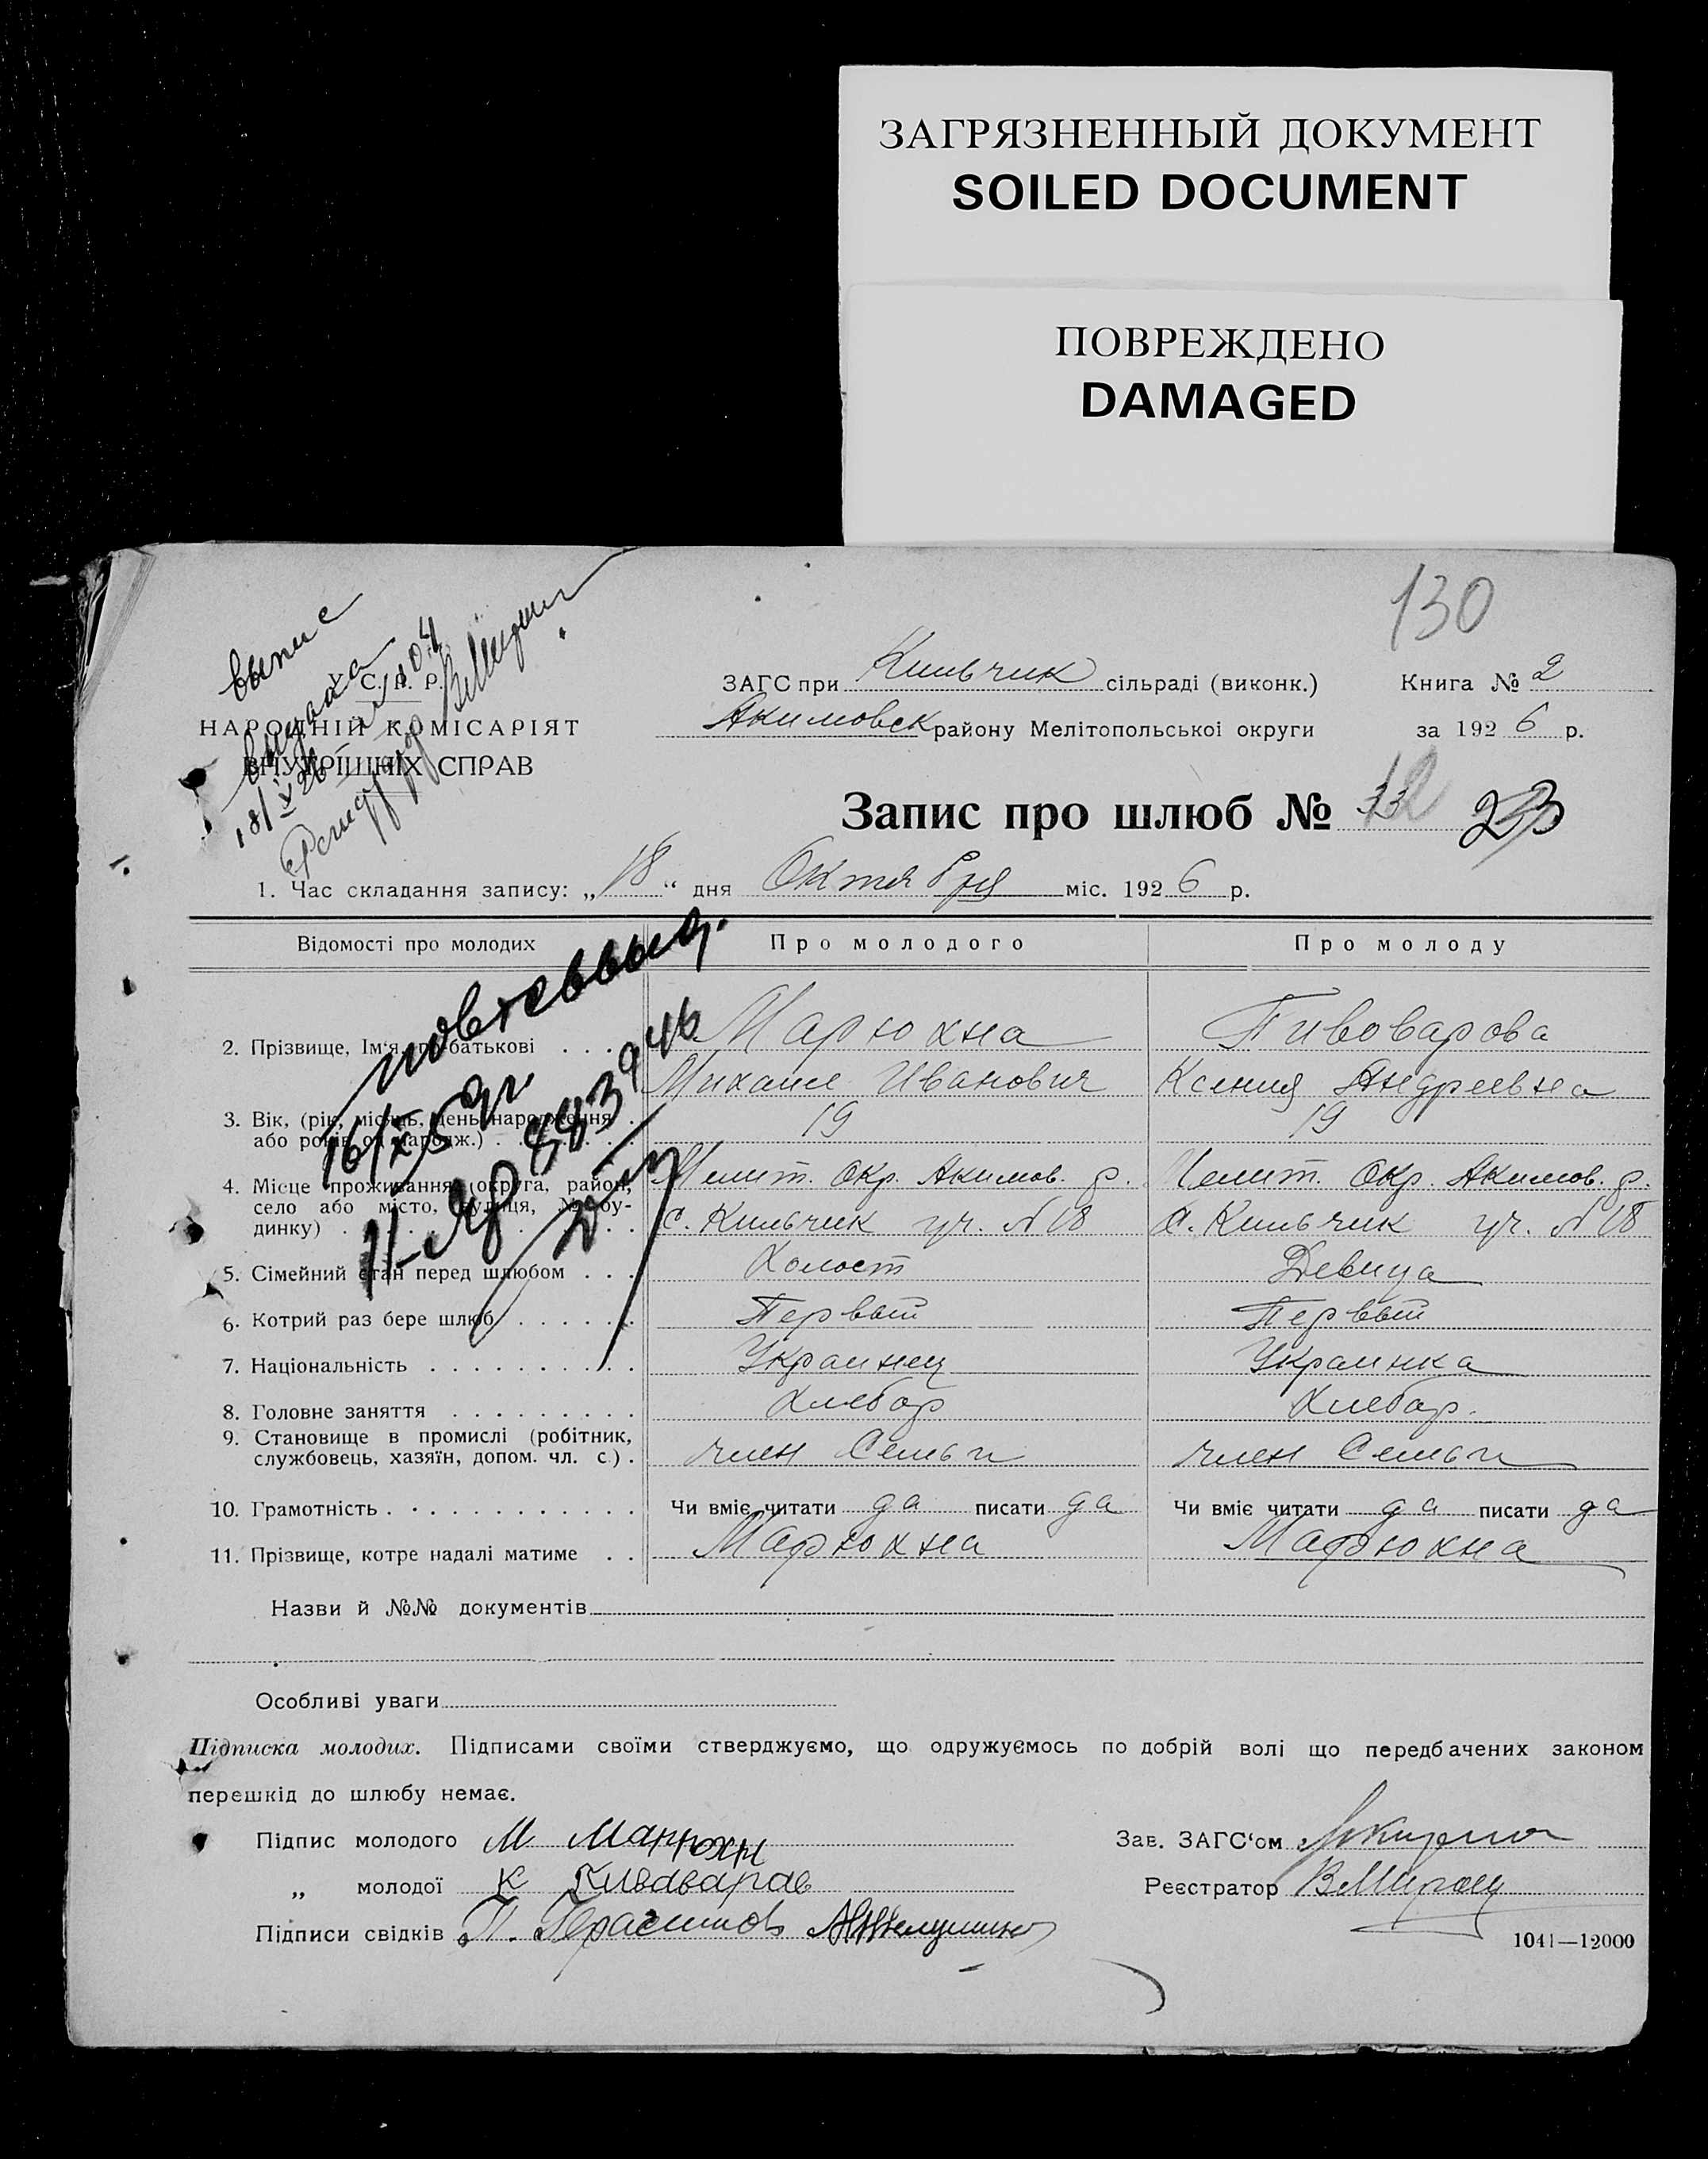 ЗАГРЯЗНЕННЫЙ ДОКУМЕНТ
SOILED DOCUMENT
ПОВРЕЖДЕНО
DAMAGED
130
выпис
выдана
18/X 26
У. С. Р. Р.
НАРОДНІЙ КОМІСАРІЯТ
ВНУТРІШНІХ СПРАВ
ЗАГС при Кильчик сільраді (виконк.)
Книга № 2
Акимовск району Мелітопольської округи
за 1926 р.
Запис про шлюб № 23
1. Час складання запису: „18“ дня Октября міс. 1926 р.
Відомості про молодих
Про молодого
Про молоду
2. Прізвище, Ім'я, по батькові . . . .
Марюхна
Михаил Иванович
Пивоварова
Ксения Андреевна
3. Вік, (рік, місяць, день народження
або років од народж.) . . .
19
19
4. Місце проживання (округа, район,
село або місто, вулиця, № бу-
динку) . . .
Мелит. Окр. Акимов. р.
с. Кильчик уч. №18
Мелит. Окр. Акимов. р.
с. Кильчик уч. №18
5. Сімейний стан перед шлюбом . . .
Холост
Девица
6. Котрий раз бере шлюб . . . . . .
Первый
Первый
7. Національність . . . . . . . . . .
Украинец
Украинка
8. Головне заняття . . . . . . . . .
Хлебор
Хлебор.
9. Становище в промислі (робітник,
службовець, хазяїн, допом. чл. с.) .
член Семьи
член Семьи
10. Грамотність . . . . . . . . . . . .
Чи вміє читати да писати да
Чи вміє читати да писати да
11. Прізвище, котре надалі матиме . .
Марюхна
Марюхна
Назви й №№ документів
Особливі уваги
Підписка молодих. Підписами своїми стверджуємо, що одружуємось по добрій волі що передбачених законом
перешкід до шлюбу немає.
Підпис молодого М
Зав. ЗАГС'ом
„ молодої К Пивавараве
Реєстратор
Підписи свідків П. Герасимов
1041—12000